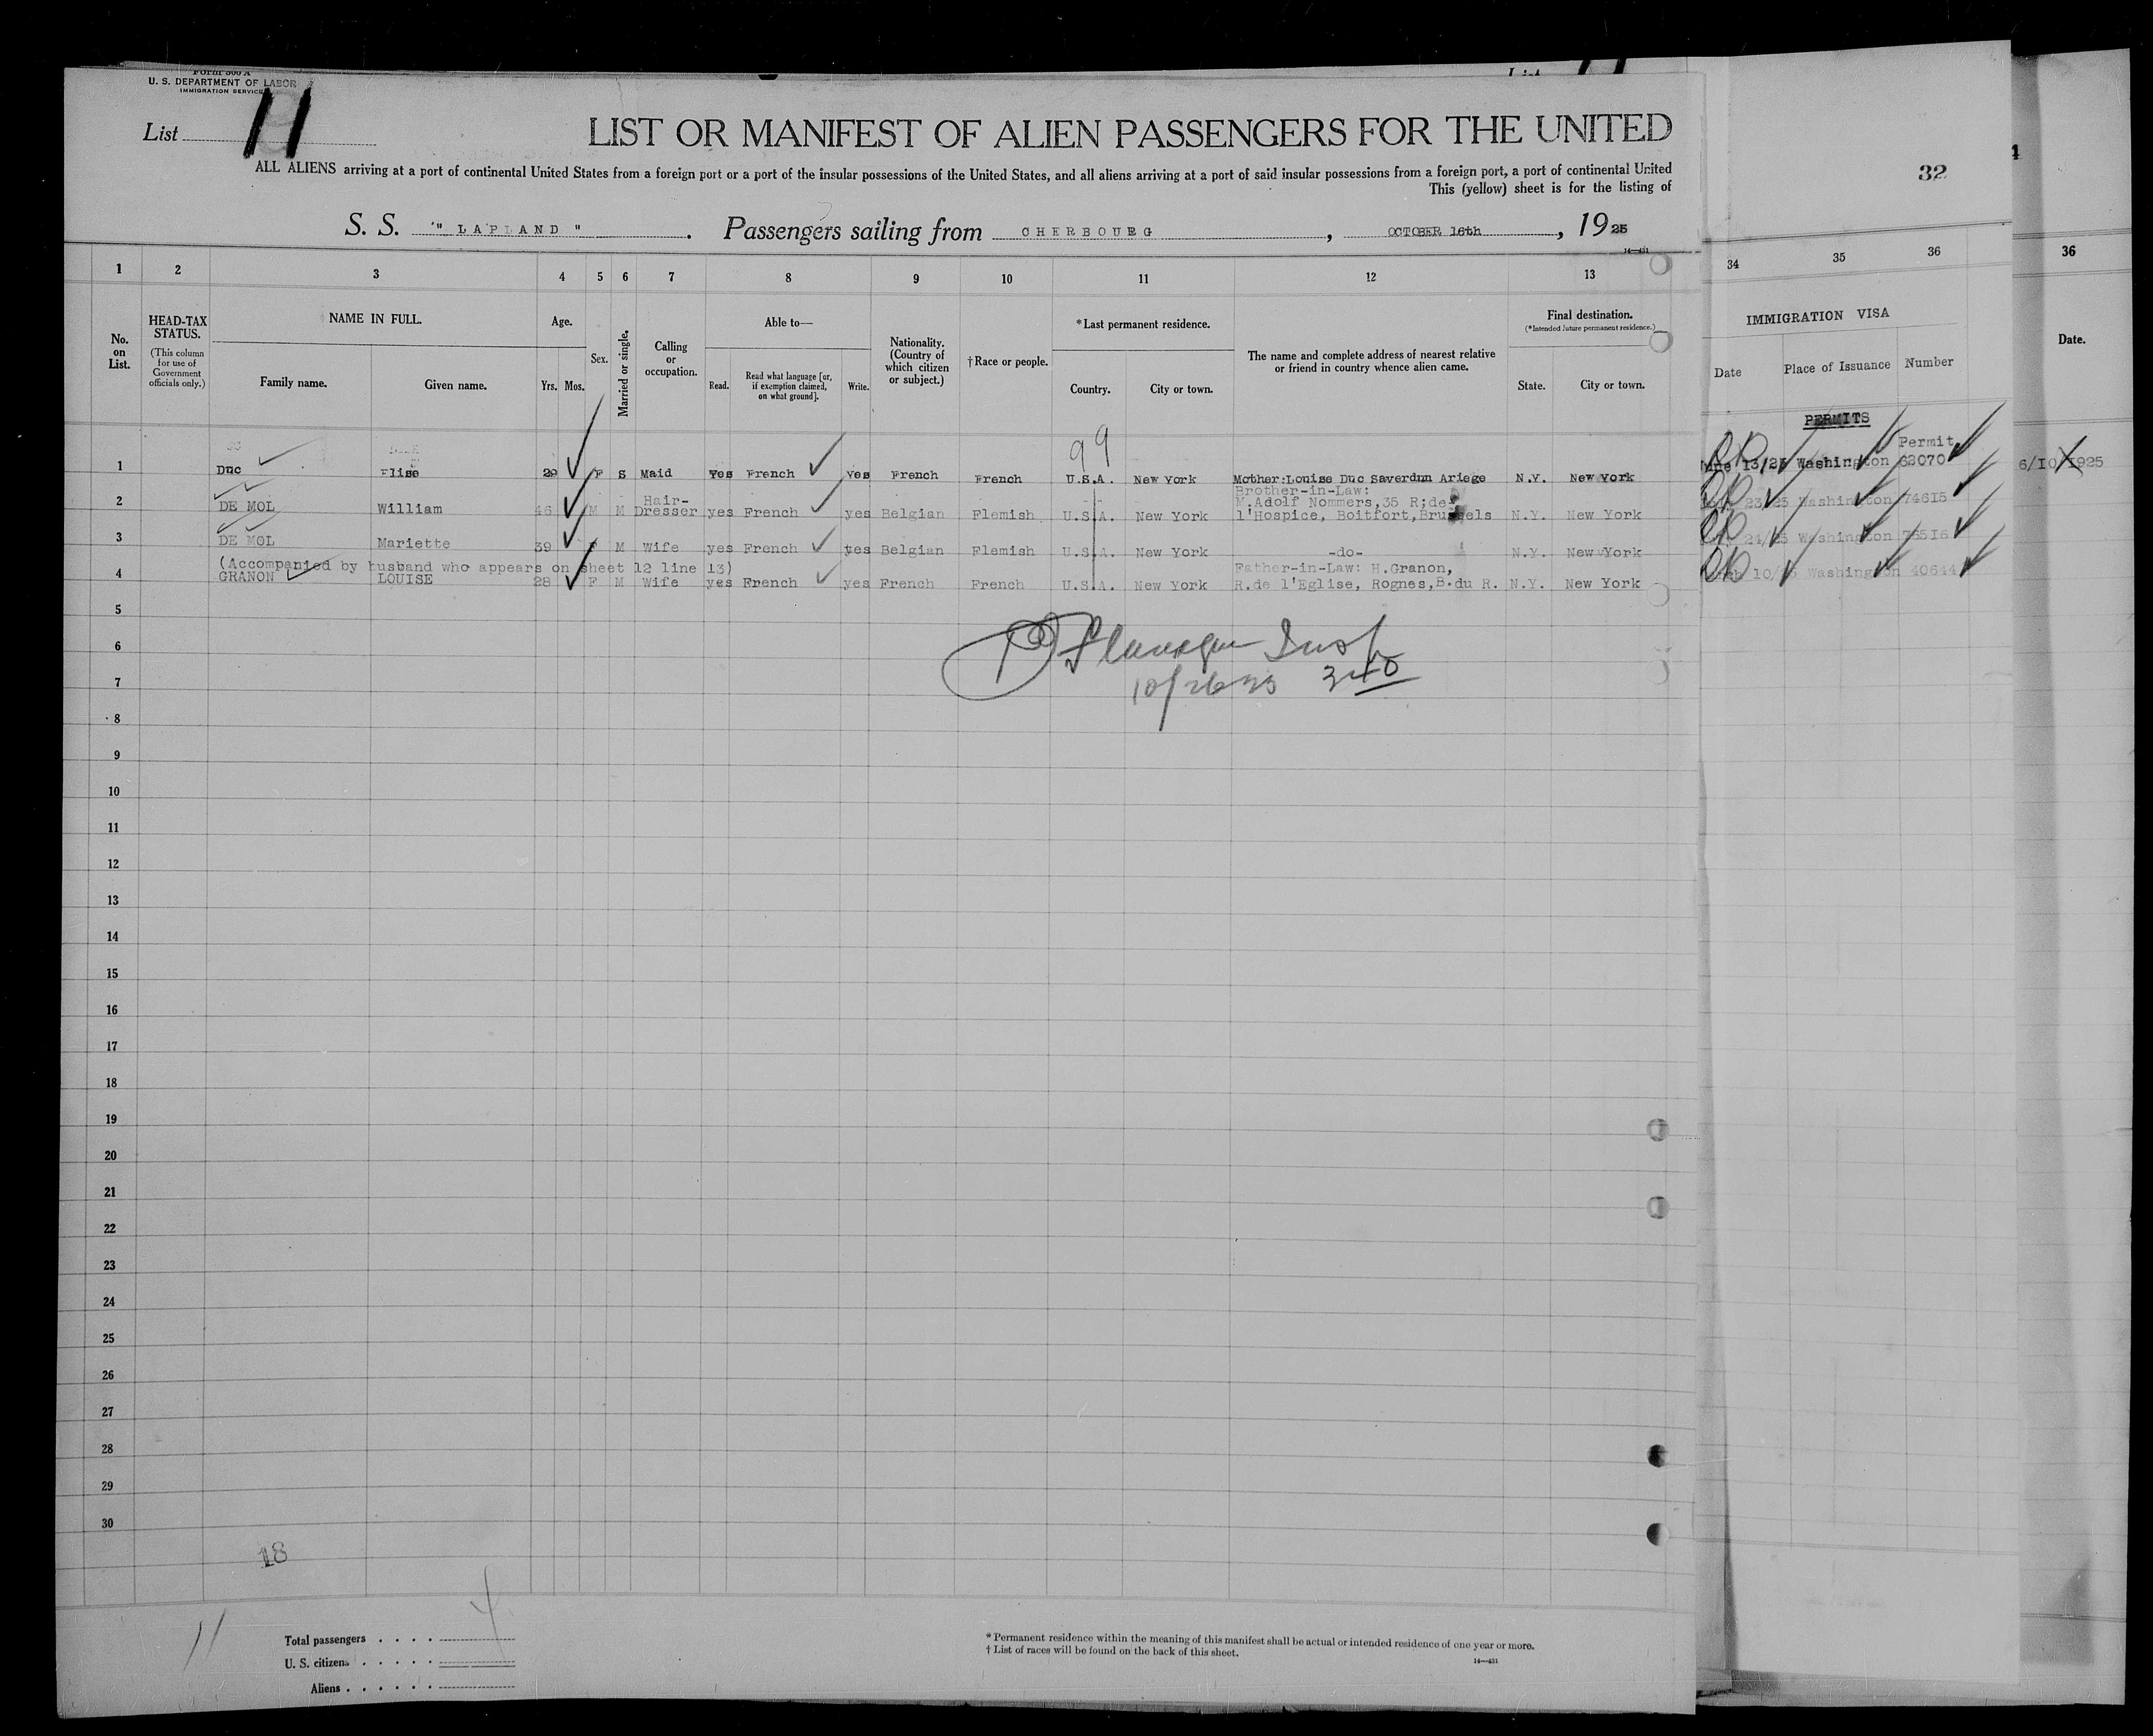 Form 500 A
U. S. DEPARTMENT OF LABOR
IMMIGRATION SERVICE
List 11
LIST OR MANIFEST OF ALIEN PASSENGERS FOR THE UNITED
ALL ALIENS arriving at a port of continental United States from a foreign port or a port of the insular possessions of the United States, and all aliens arriving at a port of said insular possessions from a foreign port, a port of continental United
This (yellow) sheet is for the listing of
S. S. " LAPLAND " . Passengers sailing from CHERBOURG , OCTOBER 16th , 1925
14—431
32
1 2 3 4 5 6 7 8 9 10 11 12 13 34 35 36 36
No. on List.
HEAD-TAX STATUS.
(This column for use of Government officials only.)
NAME IN FULL.
Family name. Given name.
Age.
Yrs. Mos.
Sex.
Married or single.
Calling or occupation.
Able to—
Read. Read what language [or, if exemption claimed, on what ground]. Write.
Nationality. (Country of which citizen or subject.)
†Race or people.
*Last permanent residence.
Country. City or town.
The name and complete address of nearest relative or friend in country whence alien came.
Final destination.
(*Intended future permanent residence.)
State. City or town.
IMMIGRATION VISA
Date Place of Issuance Number
Date.
PERMITS
99
Permit
1 Duc Elise 29 F S Maid Yes French yes French French U.S.A. New York Mother:Louise Duc Saverdun Ariege N.Y. New York June 13/25 Washington 62070 6/10/1925
Brother-in-Law:
Hair- M.Adolf Nommers,35 R;de
2 DE MOL William 46 M M Dresser yes French yes Belgian Flemish U.S.A. New York l'Hospice, Boitfort,Brussels N.Y. New York 23/25 Washington 74615
3 DE MOL Mariette 39 F M Wife yes French yes Belgian Flemish U.S.A. New York -do- N.Y. New York 24/25 Washington
(Accompanied by husband who appears on sheet 12 line 13) Father-in-Law: H.Granon,
4 GRANON LOUISE 28 F M Wife yes French yes French French U.S.A. New York R.de l'Eglise, Rognes,B.du R. N.Y. New York 10/25 Washington 40644
5
6 Flanagan Insp
7 10/26 25 340
8
9
10
11
12
13
14
15
16
17
18
19
20
21
22
23
24
25
26
27
28
29
30
18
11
4
Total passengers . . . .
U. S. citizens . . . . .
Aliens . . . . . .
* Permanent residence within the meaning of this manifest shall be actual or intended residence of one year or more.
† List of races will be found on the back of this sheet.
14—431